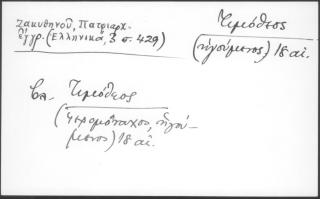 Ζακυθηνοῦ, Πατριαρχ.
ἔγγρ. (Ἑλληνικά, 3 σ. 429)
Τιμόθεος
(ἡγούμενος) 18 αἰ.
βλ. Τιμόθεος
(ἱερομόναχος, ἡγού-
μενος) 18 αἰ.